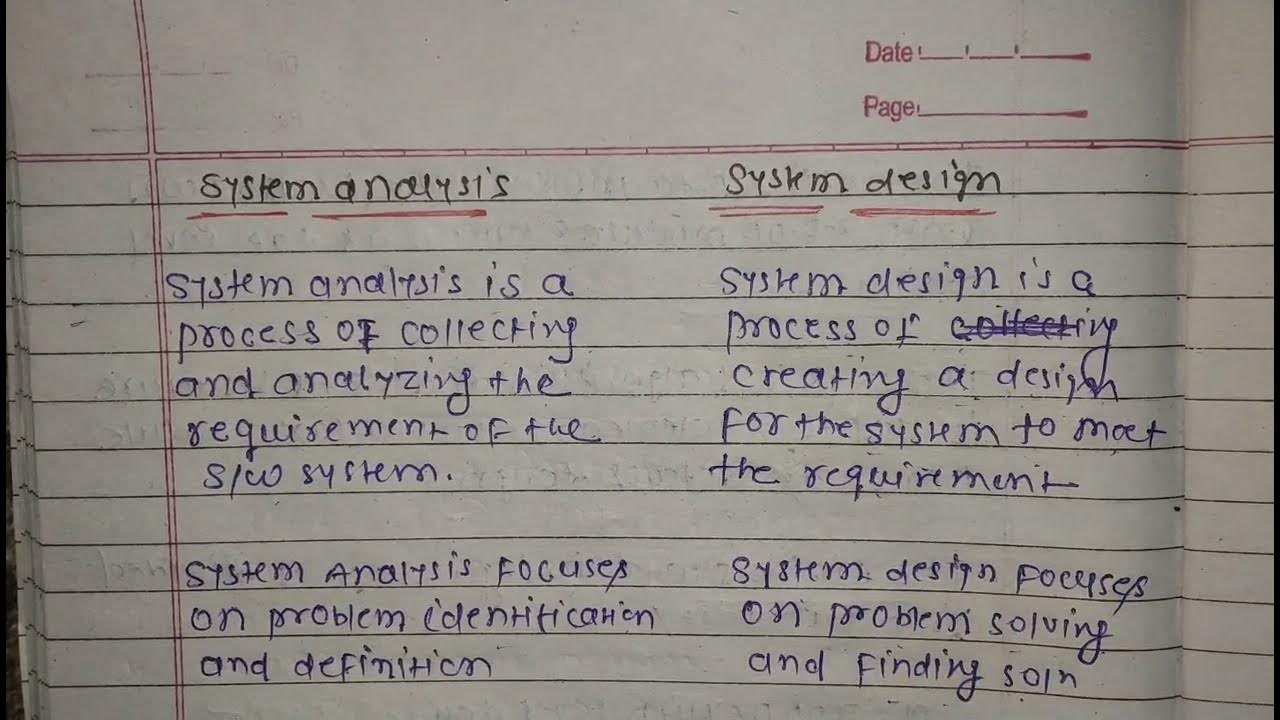 Date
Page
System analysis
System design
System analysis is a
process of collecting
and analyzing the
requirement of the
s/w system.
System design is a
process of collecting
creating a design
for the system to meet
the requirement
System Analysis Focuses
on problem identification
and definition
System design Focuses
on problem solving
and finding soln